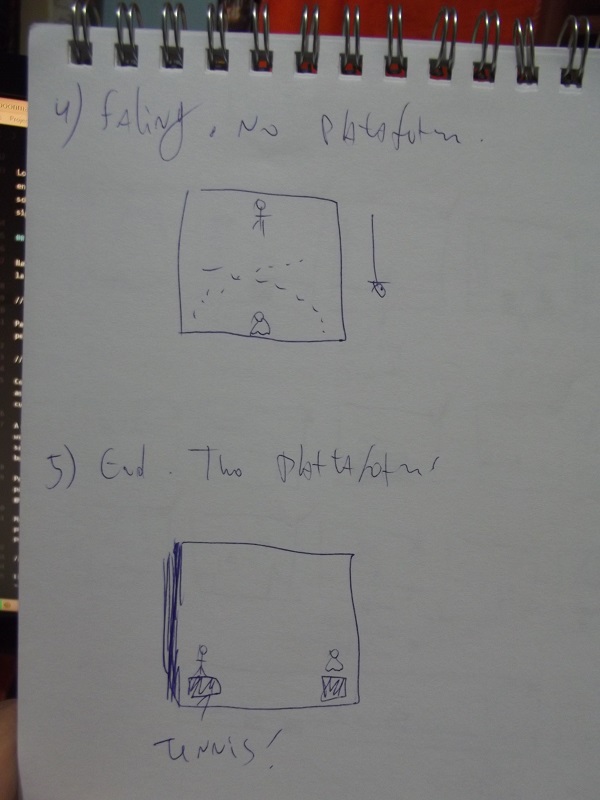 4) FALiNg. No PlAtAform.
5) End. Two PlAttAforms
TENNiS!